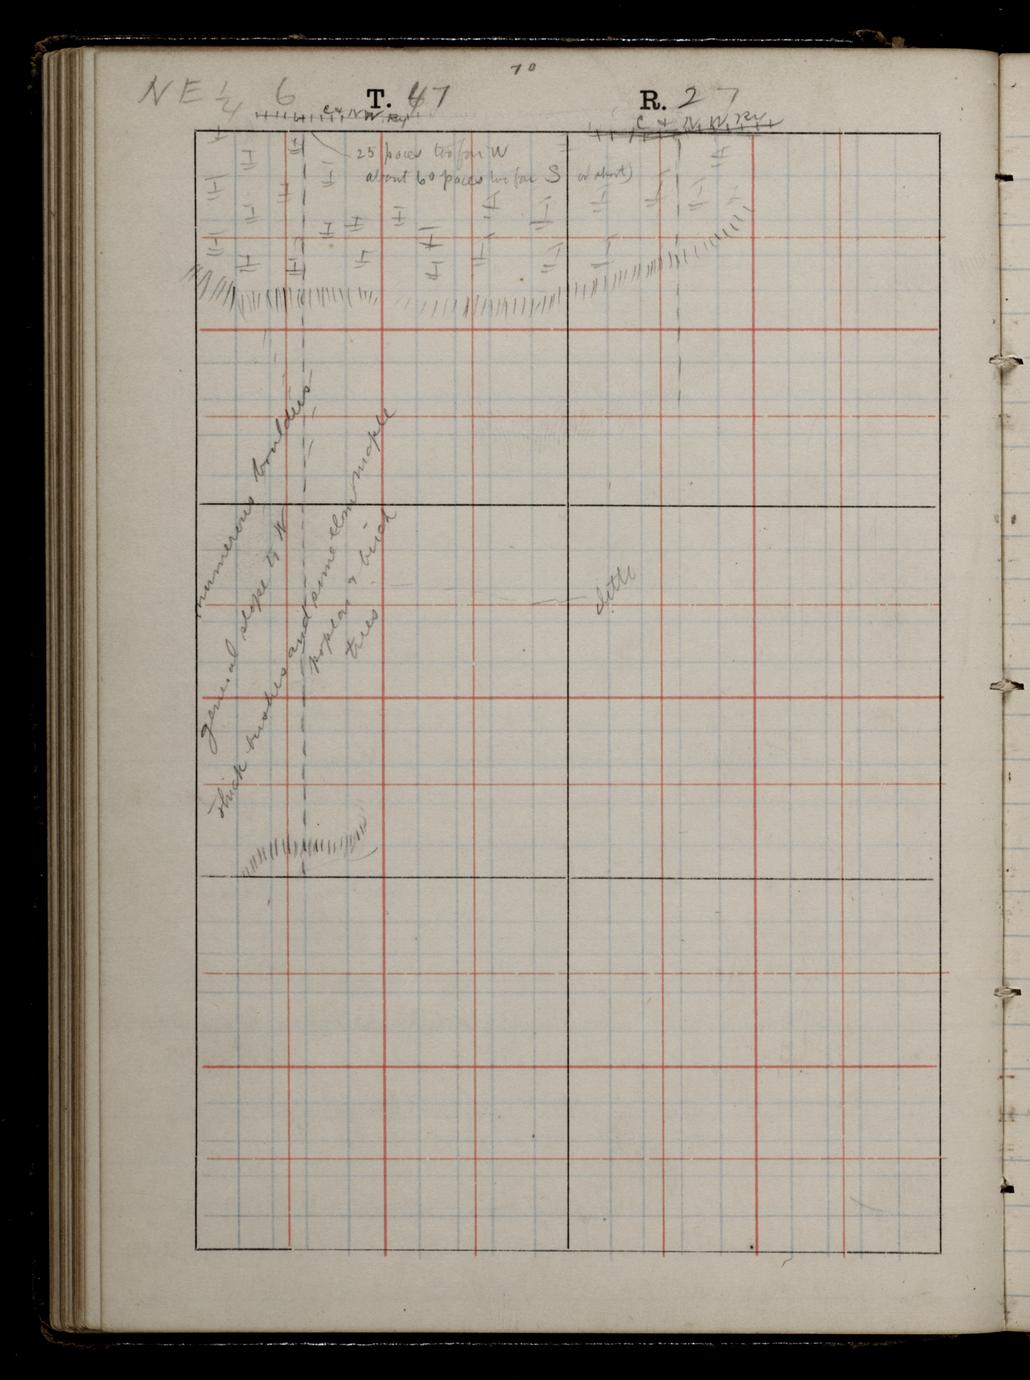 70
NE 1/4 6 T. 47 R. 27
C & N W Ry
C & N W Ry
25 paces too far W
about 60 paces too far S (or about)
numerous boulders
general slope to W
thick bushes and some elm maple
poplar & birch
trees
ditto